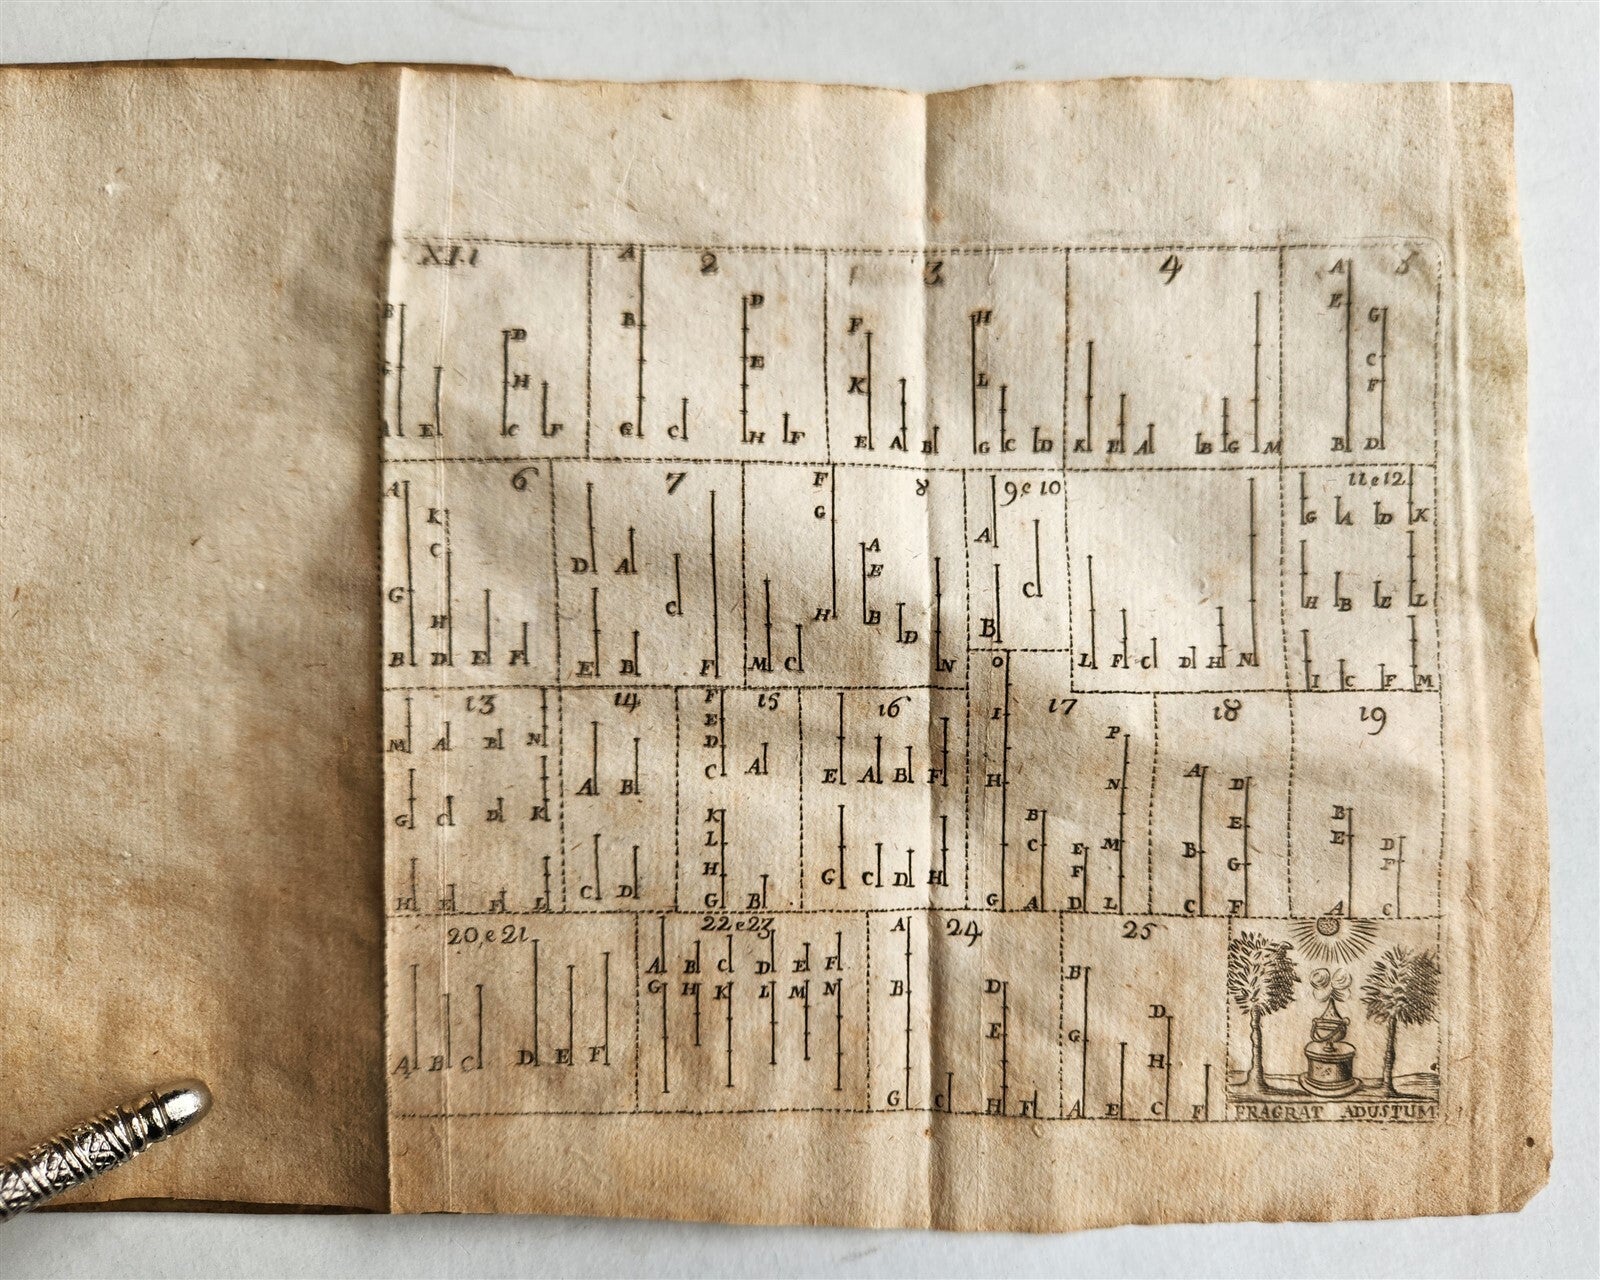 XI.1 A 2 3 4 A 5
B D F H E G
G D B E K L C
H F
A E C F G C H F E A B G C D K E A B G M B D
A 6 7 F 8 9 e 10 11 e 12
K G A G A D K
C D A A E
G C H B C H B E L
H D B
B D E F E B F M C N O L F C D H N I C F M
13 14 F 15 16 I 17 18 19
M A B N E P
D C A E A B F H N A D
A B
G C D K K B E B
L C E M B E D
C D H G C D H F G F
H E F L G B G A D L C F A C
20, e 21 22 e 23 A 24 25
A B C D E F B
G H K L M N B D D
E G H
A B C D E F G C H F A E C F
FRAGRAT ADUSTUM